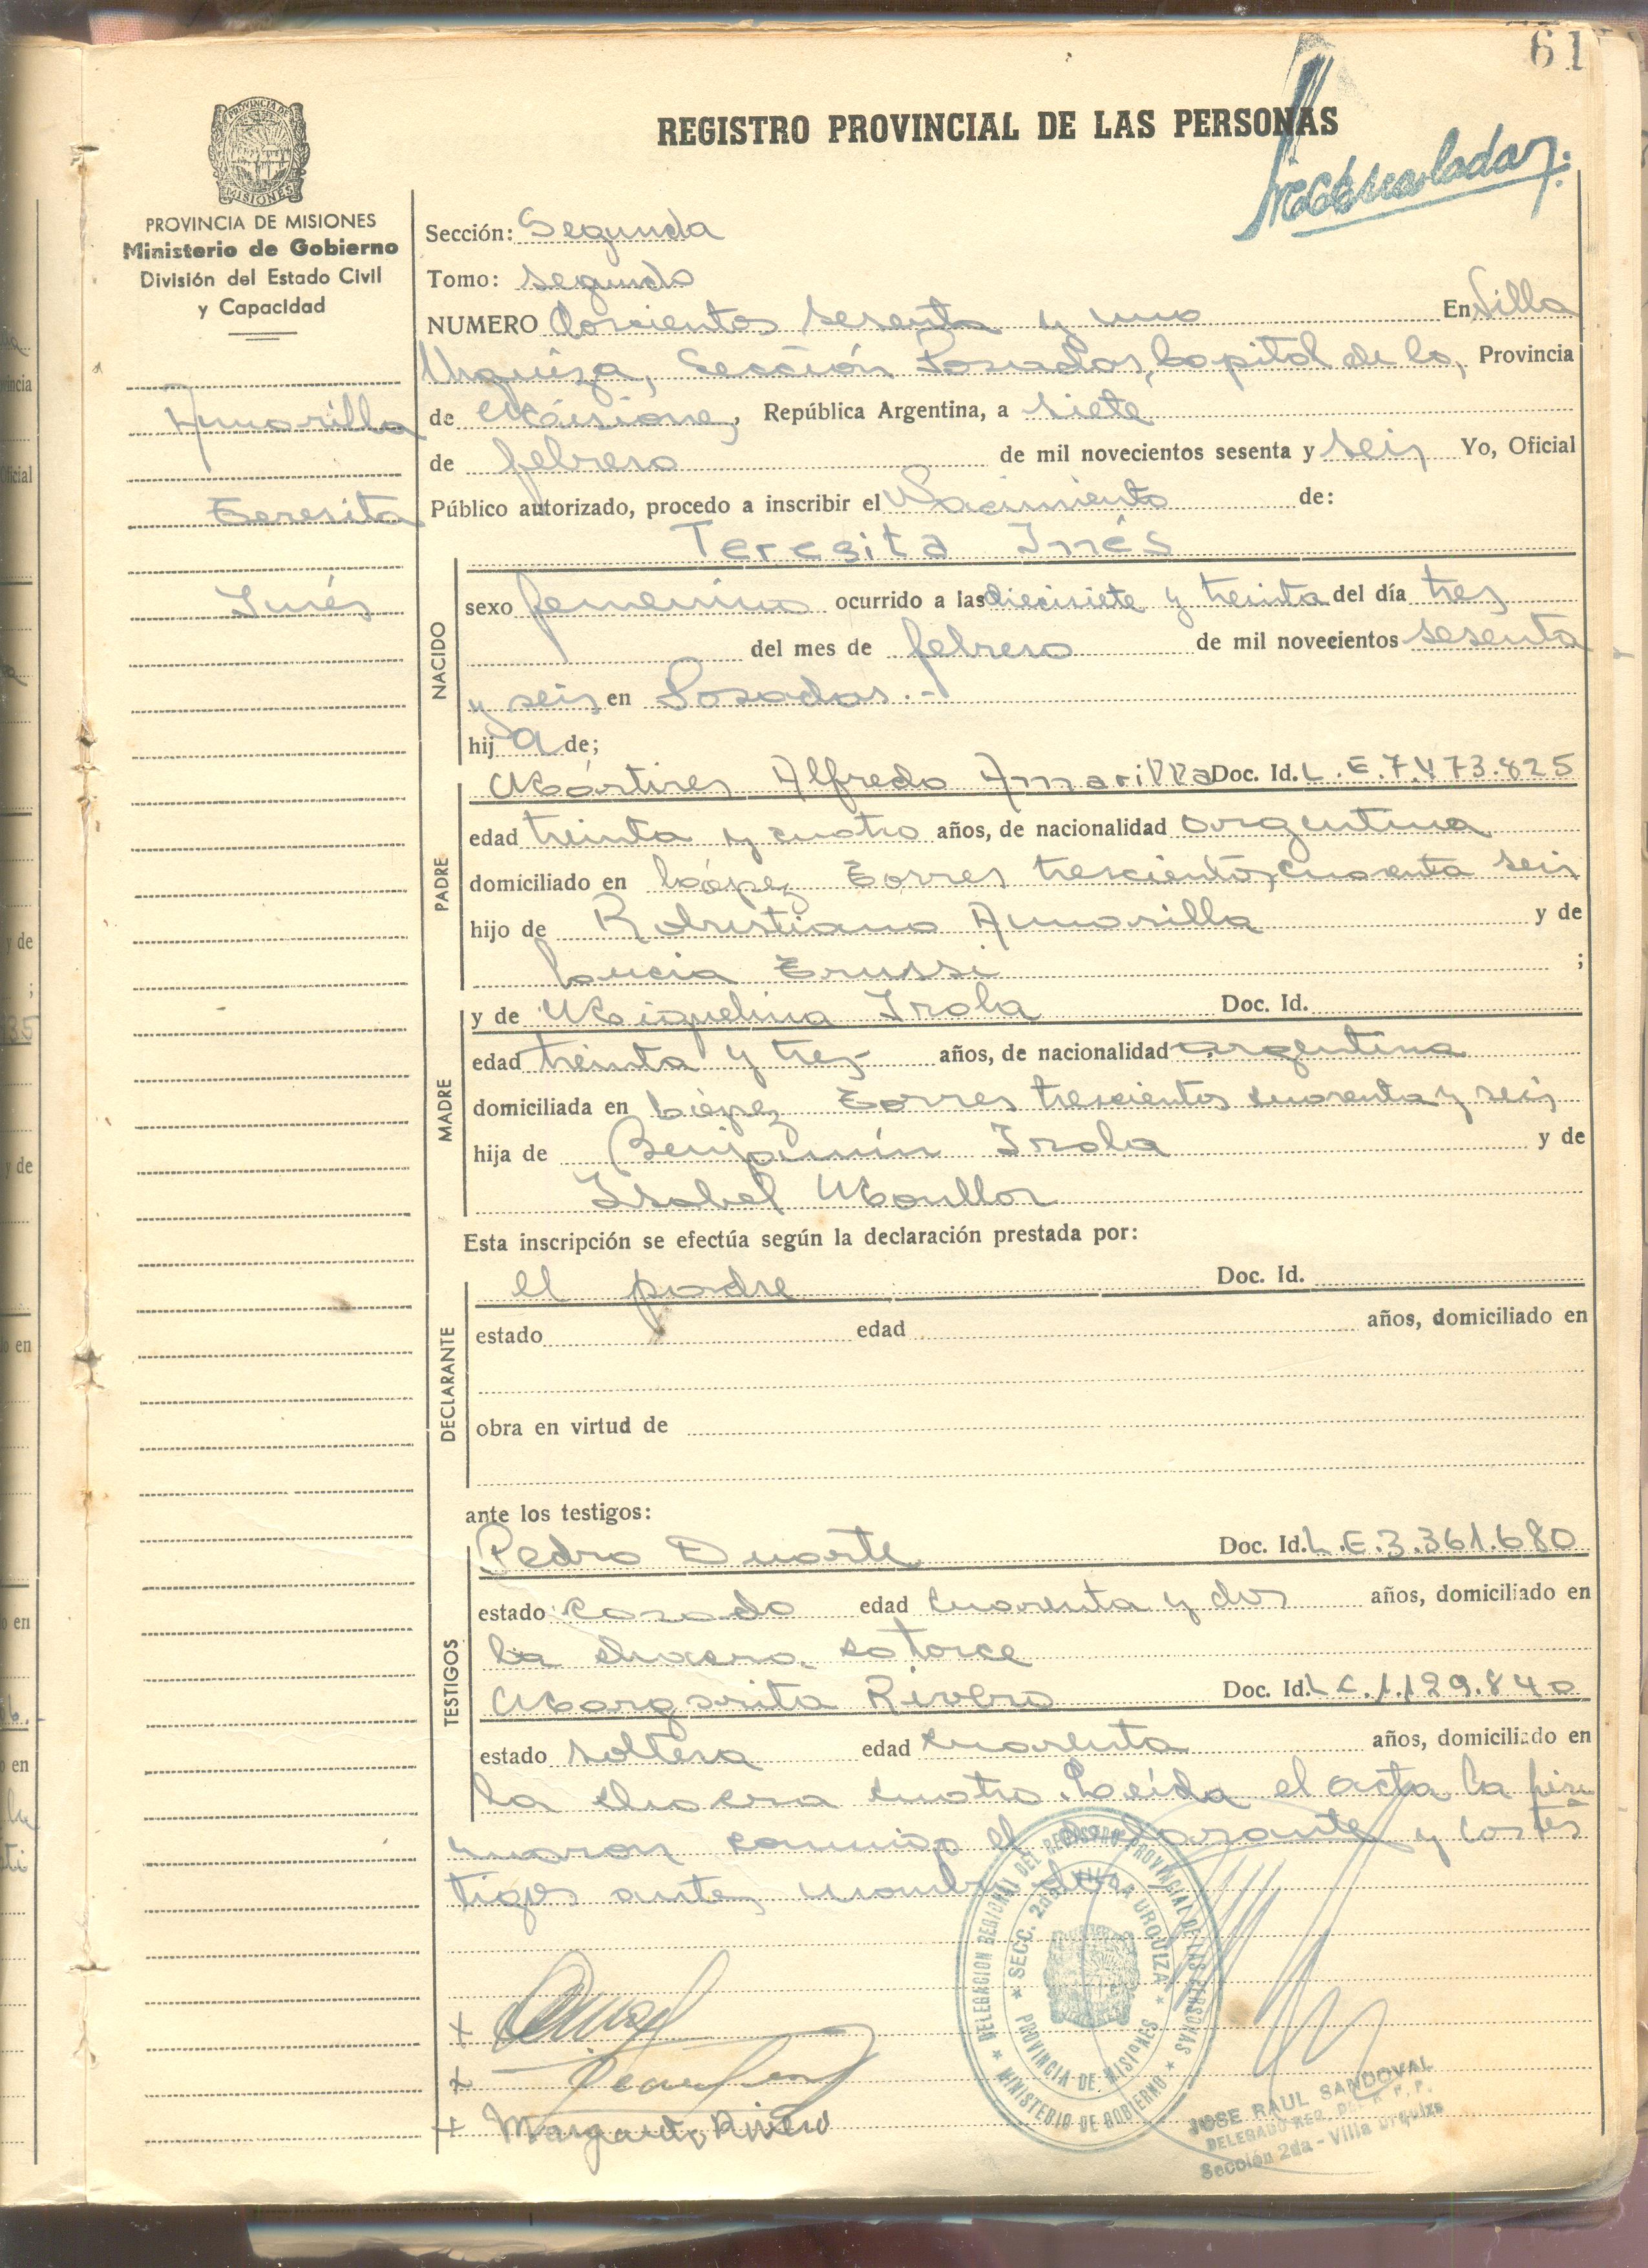 61
REGISTRO PROVINCIAL DE LAS PERSONAS
PROVINCIA DE MISIONES
PROVINCIA DE MISIONES
Ministerio de Gobierno
División del Estado Civil
y Capacidad
Amarilla
Teresita
Inés
Sección: Segunda
Tomo: segundo
NUMERO Doscientos sesenta y uno En Villa
Urquiza, Sección Posadas, Capital de la, Provincia
de Misiones, República Argentina, a siete
de febrero de mil novecientos sesenta y seis Yo, Oficial
Público autorizado, procedo a inscribir el Nacimiento de:
Teresita Inés
NACIDO
sexo femenino ocurrido a las diecisiete y treinta del día tres
del mes de febrero de mil novecientos sesenta
y seis en Posadas.-
hij a de;
PADRE
Mártires Alfredo Amarilla Doc. Id. L.E.7.473.825
edad treinta y cuatro años, de nacionalidad argentina
domiciliado en López Torres trescientos, cuarenta seis
hijo de Robustiano Amarilla y de
Lucia Trussi ;
MADRE
y de Miguelina Irala Doc. Id.
edad treinta y tres años, de nacionalidad argentina
domiciliada en López Torres trescientos cuarenta y seis
hija de Benjamín Irala y de
Isabel
Esta inscripción se efectúa según la declaración prestada por:
DECLARANTE
el padre Doc. Id.
estado edad años, domiciliado en
obra en virtud de
ante los testigos:
TESTIGOS
Pedro Duarte Doc. Id. L.E.3.361.680
estado casado edad cuarenta y dos años, domiciliado en
la chacra catorce
Margarita Rivero Doc. Id. L.C.1.129.840
estado soltera edad cuarenta años, domiciliado en
la chacra cuatro. Leída el acta la fir
maron conmigo el declarante y los tes
tigos antes nombrados
DELEGACION REGIONAL DEL REGISTRO PROVINCIAL DE LAS PERSONAS
MINISTERIO DE GOBIERNO
SECC. 2da VILLA URQUIZA
PROVINCIA DE MISIONES
Margarita Rivero
JOSE RAUL SANDOVAL
DELEGADO REG. DEL R.P.P.
Sección 2da - Villa Urquiza